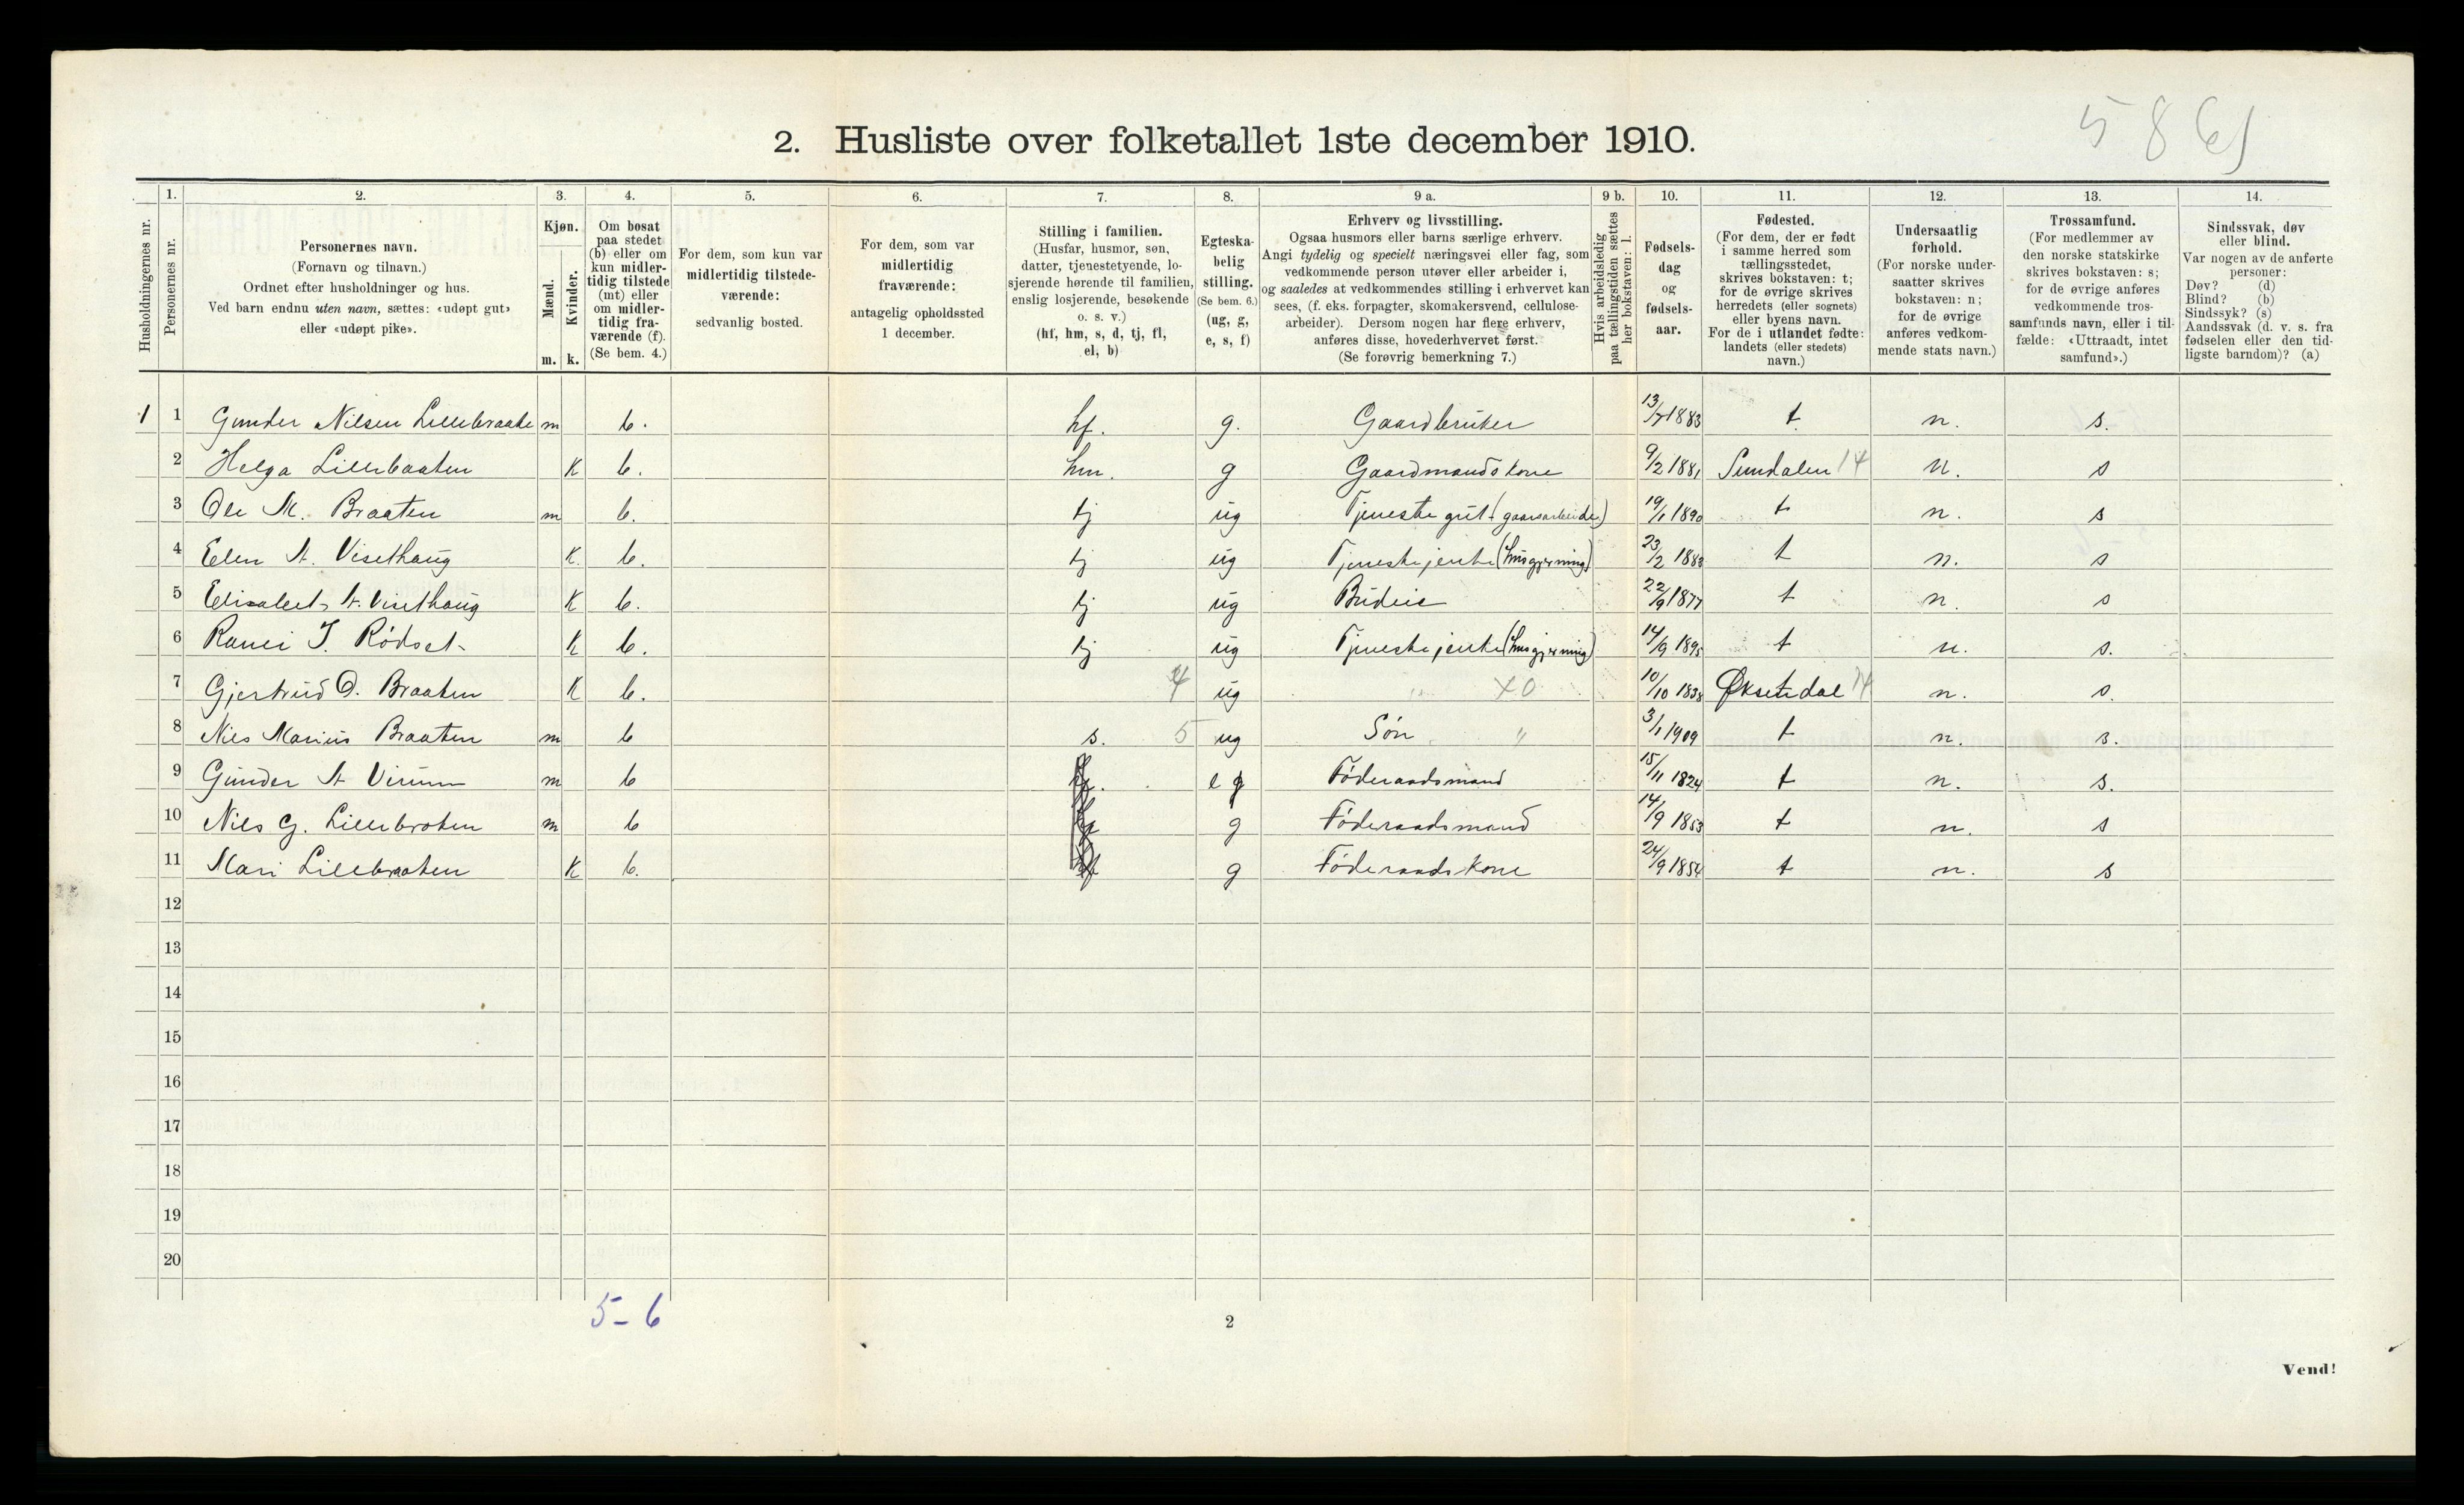 5861
2. Husliste over folketallet 1ste december 1910.
Husholdningernes nr.
1. Personernes nr.
2. Personernes navn. (Fornavn og tilnavn.) Ordnet efter husholdninger og hus. Ved barn endnu uten navn, sættes: «udøpt gut» eller «udøpt pike».
3. Kjøn. Mænd. m. Kvinder. k.
4. Om bosat paa stedet (b) eller om kun midlertidig tilstede (mt) eller om midlertidig fraværende (f). (Se bem. 4.)
5. For dem, som kun var midlertidig tilstedeværende: sedvanlig bosted.
6. For dem, som var midlertidig fraværende: antagelig opholdssted 1 december.
7. Stilling i familien. (Husfar, husmor, søn, datter, tjenestetyende, losjerende hørende til familien, enslig losjerende, besøkende o. s. v.) (hf, hm, s, d, tj, fl, el, b)
8. Egteskabelig stilling. (Se bem. 6.) (ug, g, e, s, f)
9 a. Erhverv og livsstilling. Ogsaa husmors eller barns særlige erhverv. Angi tydelig og specielt næringsvei eller fag, som vedkommende person utøver eller arbeider i, og saaledes at vedkommendes stilling i erhvervet kan sees, (f. eks. forpagter, skomakersvend, cellulosearbeider). Dersom nogen har flere erhverv, anføres disse, hovederhvervet først. (Se forøvrig bemerkning 7.)
9 b. Hvis arbeidsledig paa tællingstiden sættes her bokstaven: l.
10. Fødselsdag og fødselsaar.
11. Fødested. (For dem, der er født i samme herred som tællingsstedet, skrives bokstaven: t; for de øvrige skrives herredets (eller sognets) eller byens navn. For de i utlandet fødte: landets (eller stedets) navn.)
12. Undersaatlig forhold. (For norske undersaatter skrives bokstaven: n; for de øvrige anføres vedkommende stats navn.)
13. Trossamfund. (For medlemmer av den norske statskirke skrives bokstaven: s; for de øvrige anføres vedkommende trossamfunds navn, eller i tilfælde: «Uttraadt, intet samfund».)
14. Sindssvak, døv eller blind. Var nogen av de anførte personer: Døv? (d) Blind? (b) Sindssyk? (s) Aandssvak (d. v. s. fra fødselen eller den tidligste barndom)? (a)
1 1 Gunder Nilsen Lillebraate m b. hf. g. Gaardbruker 13/7 1883 t. n. s.
2 Helga Lillebaaten K b. hm. g Gaardmandskone 9/2 1881 Sundalen 14 n. s
3 Ole M. Braaten m b. tj ug Tjenestegut (gaarsarbeide) 19/1 1890 t n. s
4 Elen A. Viselhaug K. b. tj ug Tjenestejente (husgjerning) 23/2 1883 t n. s
5 Elisabet A. Viselhaug K b. tj ug Budeie 22/9 1877 t n. s
6 Ranei J. Rødset K b. tj ug Tjenestejente (husgjerning) 14/9 1895 t n. s.
7 Gjertrud O. Braaten K b. 4 ug x0 10/10 1838 Øksendal 14 n. s.
8 Nils Marius Braaten m b s. 5 ug Søn " 3/1 1909 t n. s.
9 Gunder A Virum m b e g Føderaadsmand 15/11 1824 t n. s.
10 Nils G. Lillebroten m b g Føderaadsmand 14/9 1853 t n. s
11 Mari Lillebraaten K b. g Føderaadskone 24/9 1854 t n. s
12
13
14
15
16
17
18
19
20
5-6
2
Vend!